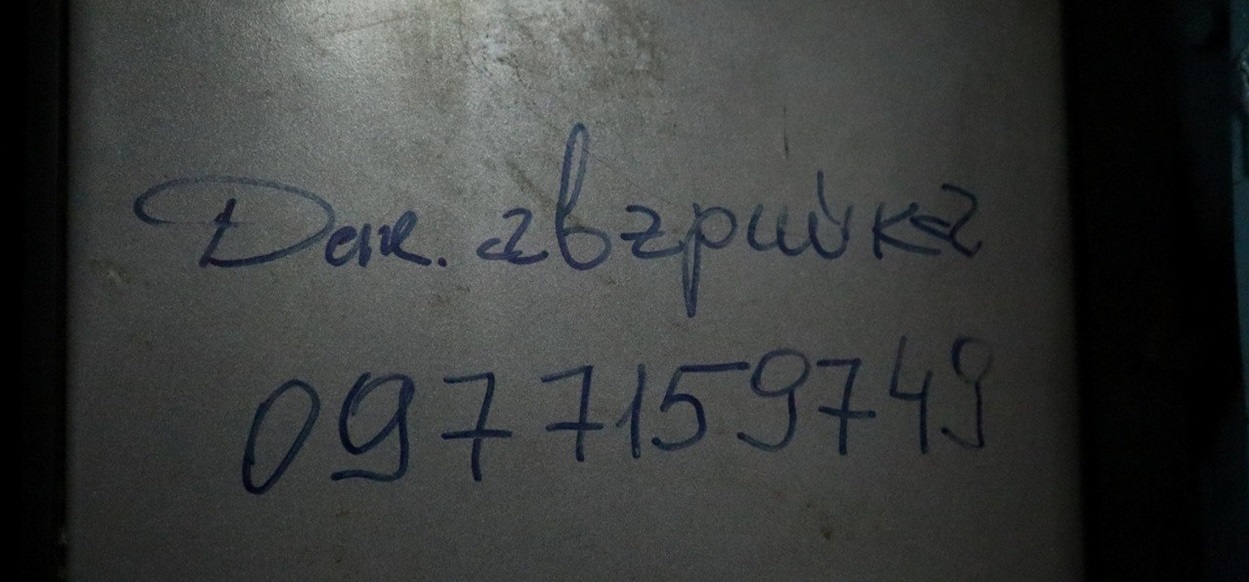 Деж. аварийка
0977159749